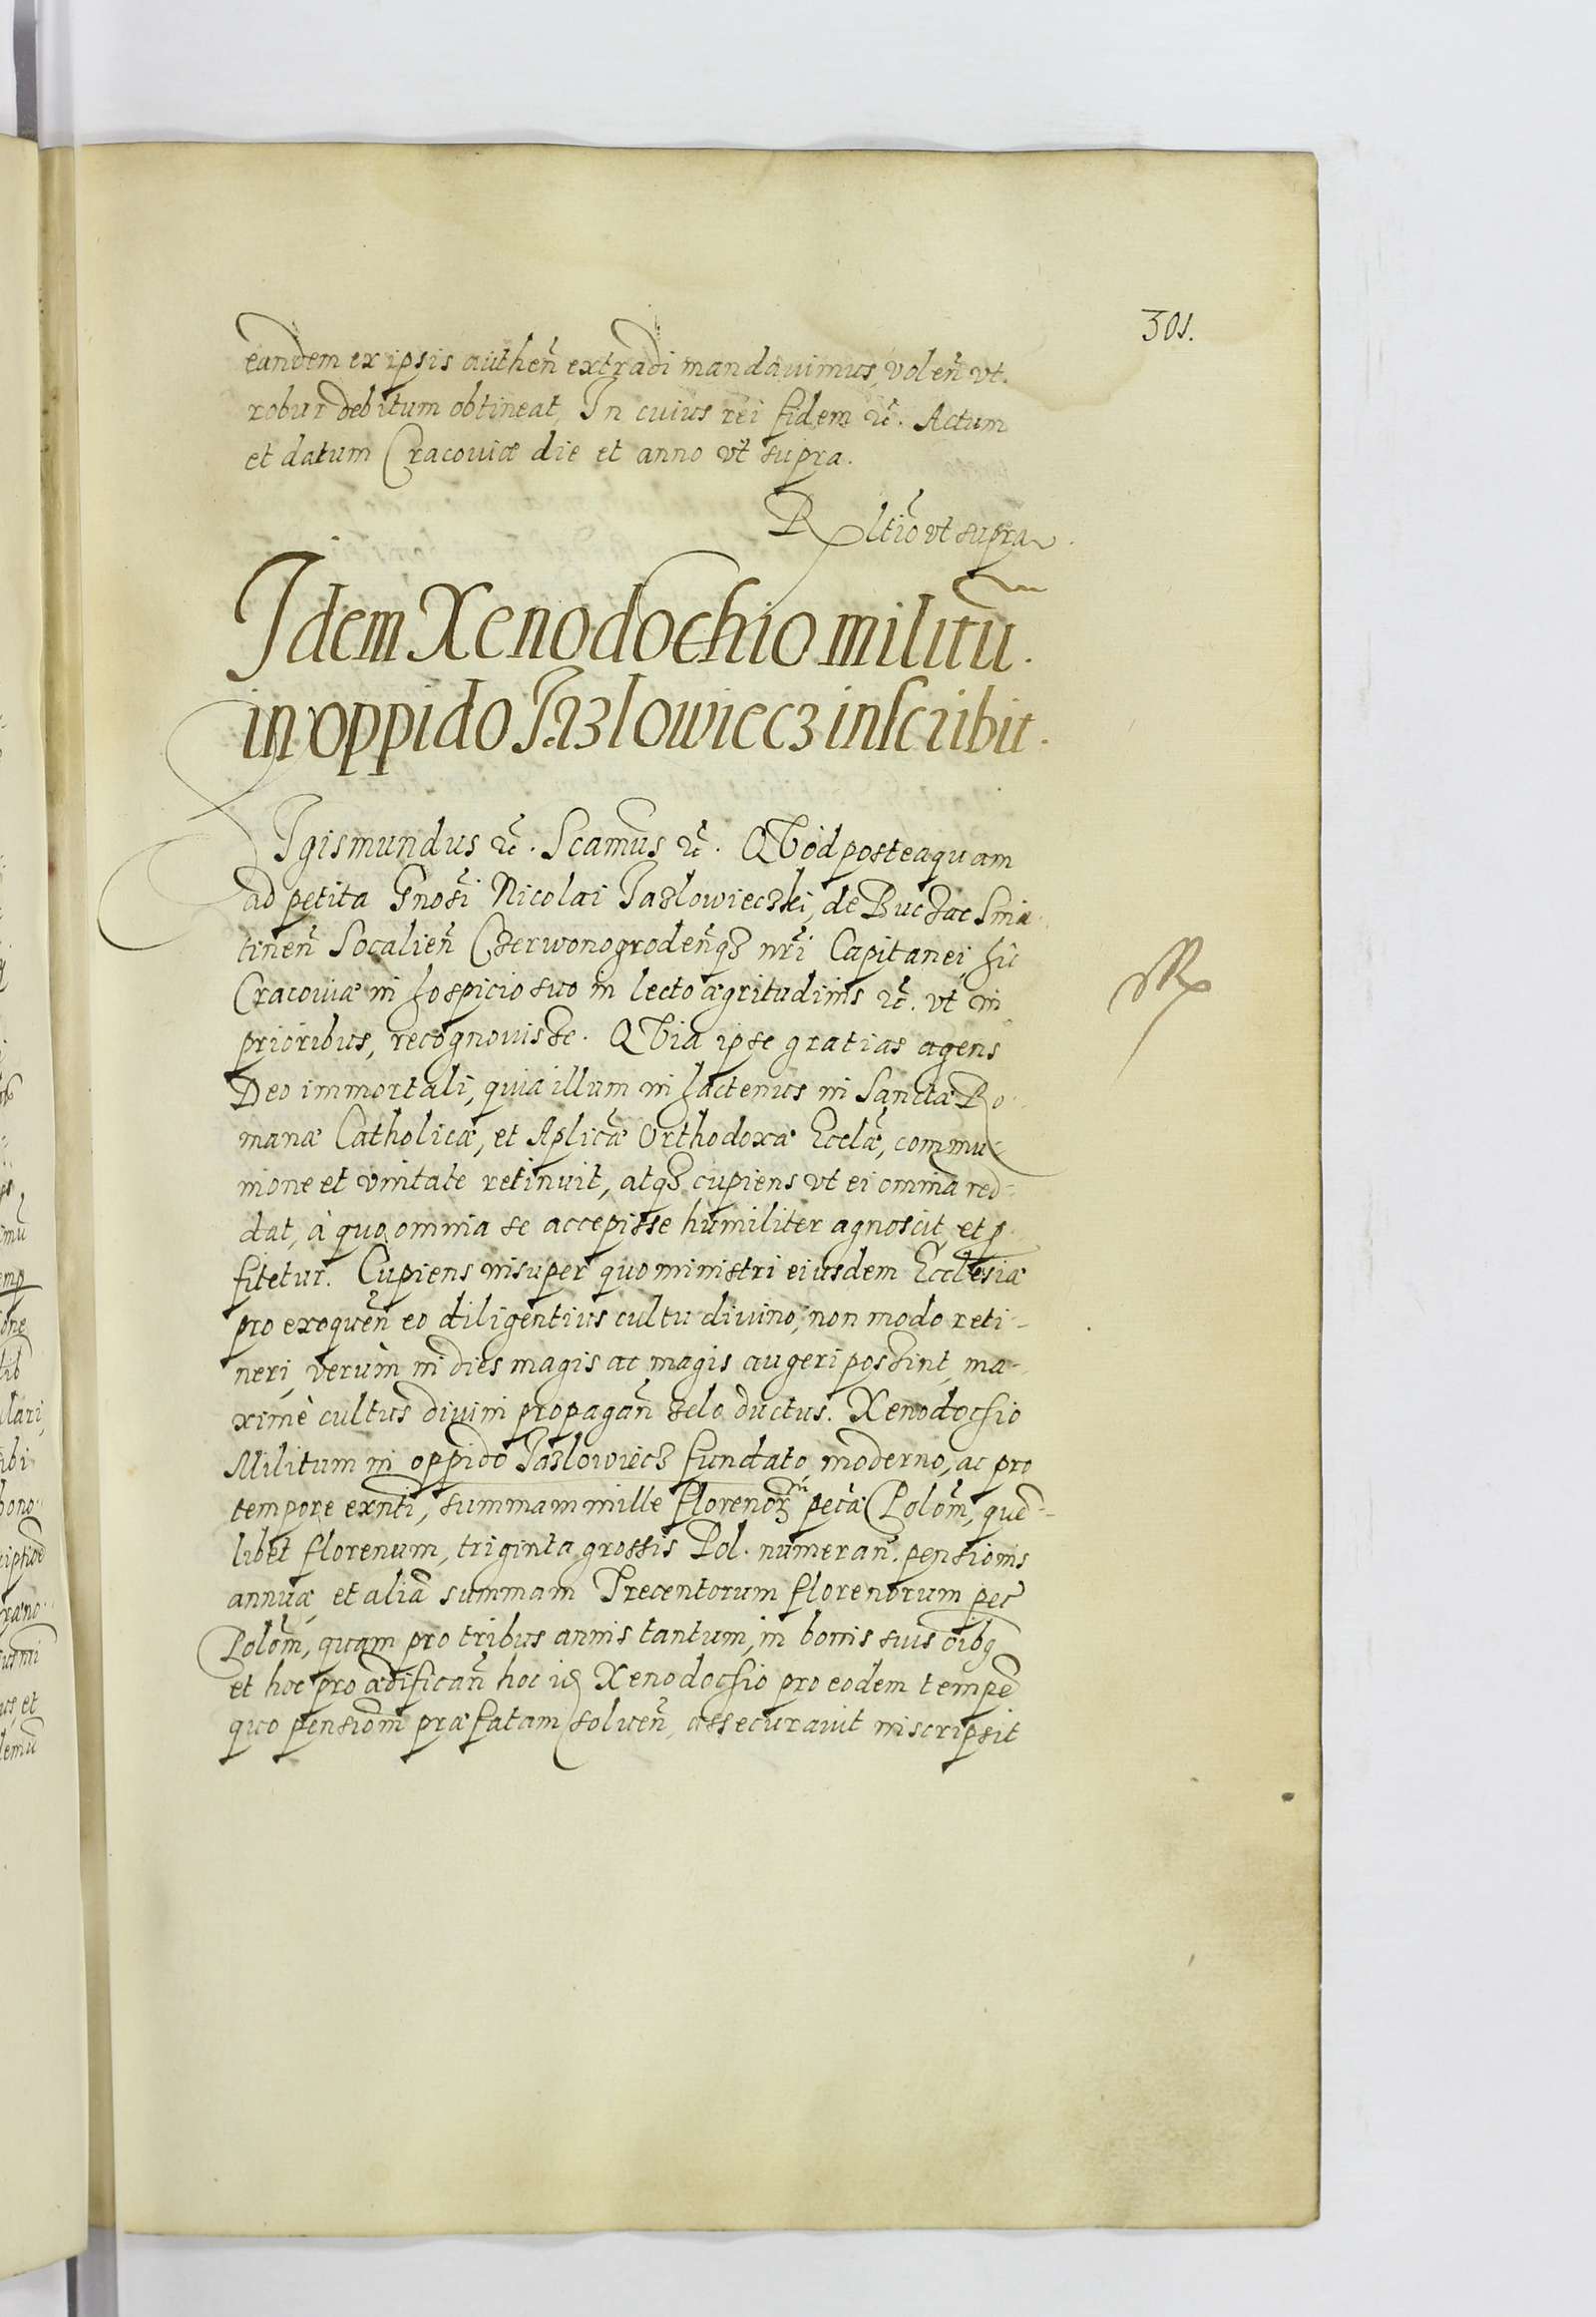 301.
eandem ex ipsis authen̄ extradi mandavimus, volen̄ vt.
robur debitum obtineat, In cuius rei fidem &c̃. Actum
et datum Cracoviæ die et anno vt supra.
Rltio vt supra.
Idem Xenodochio militū.
in oppido Jazlowiecz inscribit.
Igismundus &c̃. Scamus &c̃. QVòd posteaquam
ad petita Gnosi Nicolai Jazlowieczki, de Buczac Snia-
tinen̄ Socalien̄ Czerwonogroden̄qz nr̃i Capitanei, hic
Cracoviæ in hospicio suo in lecto ægritudinis &c̃. vt in
prioribus, recognovisse. QVia ipse gratias agens
Deo immortali, quia illum in hactenus in Sanctæ Ro-
manæ Catholicæ, et Aplicæ Orthodoxæ Ecclæ, commu-
nione et vnitate retinuit, atqz cupiens vt ei omnia red-
dat, à quo omnia se accepisse humiliter agnoscit et p
fitetur. Cupiens insuper quo ministri eiusdem Ecclesiæ
pro exequen̄ eo diligentius cultu divino, non modo reti-
neri, verùm in dies magis ac magis augeri possint, ma-
ximè cultus divini propagan̄ zelo ductus. Xenodochio
Militum in oppido Jazlowiecz fundato, moderno, ac pro
tempore exnti, summam mille florenor pecæ Polom, quē-
libet florenum, triginta grossis Pol. numeran̄. pensionis
annuæ, et aliā summam Trecentorum florenorum pec
Polom, quam pro tribus annis tantum, in bonis suis oībq
et hoc pro ædifican̄ hoc ip̄o Xenodochio pro eodem tempe
quo pensiom præfatam solven̄, assecuravit inscripsit